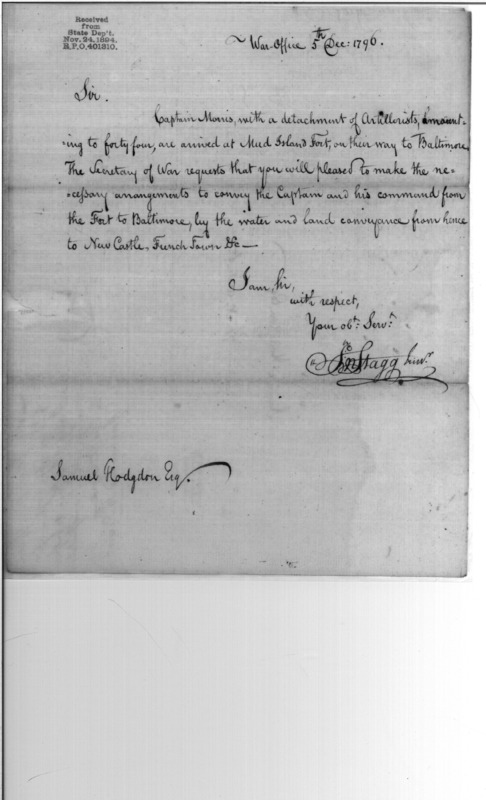 Received
from
State Dep't.
Nov. 24, 1894.
R.P.O. 401310.
War-Office 5th Dec: 1796.
Sir.
Captain Morris, with a detachment of Artillerists, amount-
-ing to forty four, are arrived at Mud Island Fort, on their way to Baltimore,
The Secretary of War requests that you will pleased to make the ne-
-cessary arrangements to convey the Captain and his command from
the Fort to Baltimore, by the water and land conveyance from hence
to New Castle, French Town &c—
I am Sir,
with respect,
Your obt. Servt.
Jno Stagg Junr.
Samuel Hodgdon Esq.